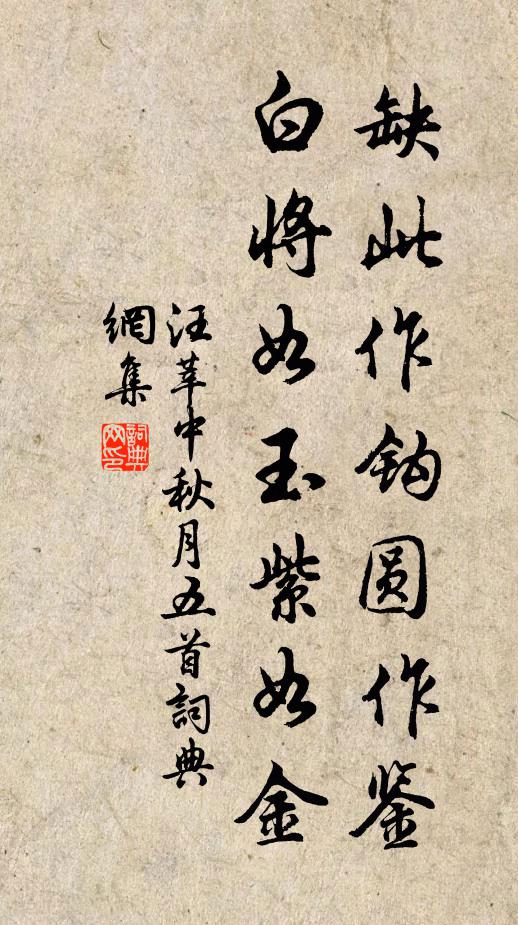 缺此作钩圆作鉴
白将如玉紫如金
汪莘中秋月五首詞典
網集
詞典網印